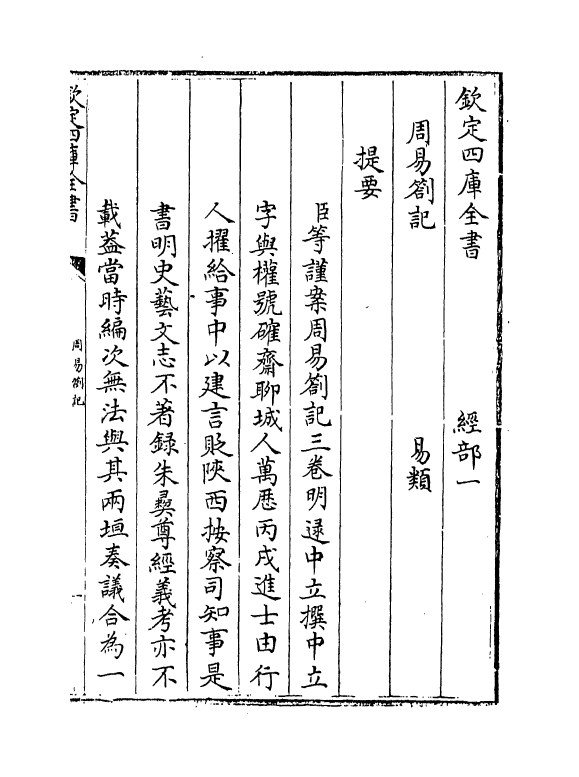 欽定四庫全書　經部一
周易劄記　易類
提要
臣等謹案周易劄記三卷明逯中立撰中立
字與權號確齋聊城人萬厯丙戌進士由行
人擢給事中以建言貶陜西按察司知事是
書明史藝文志不著録朱彞尊經義考亦不
載葢當時編次無法與其兩垣奏議合為一
欽定四庫全書
周易劄記
一